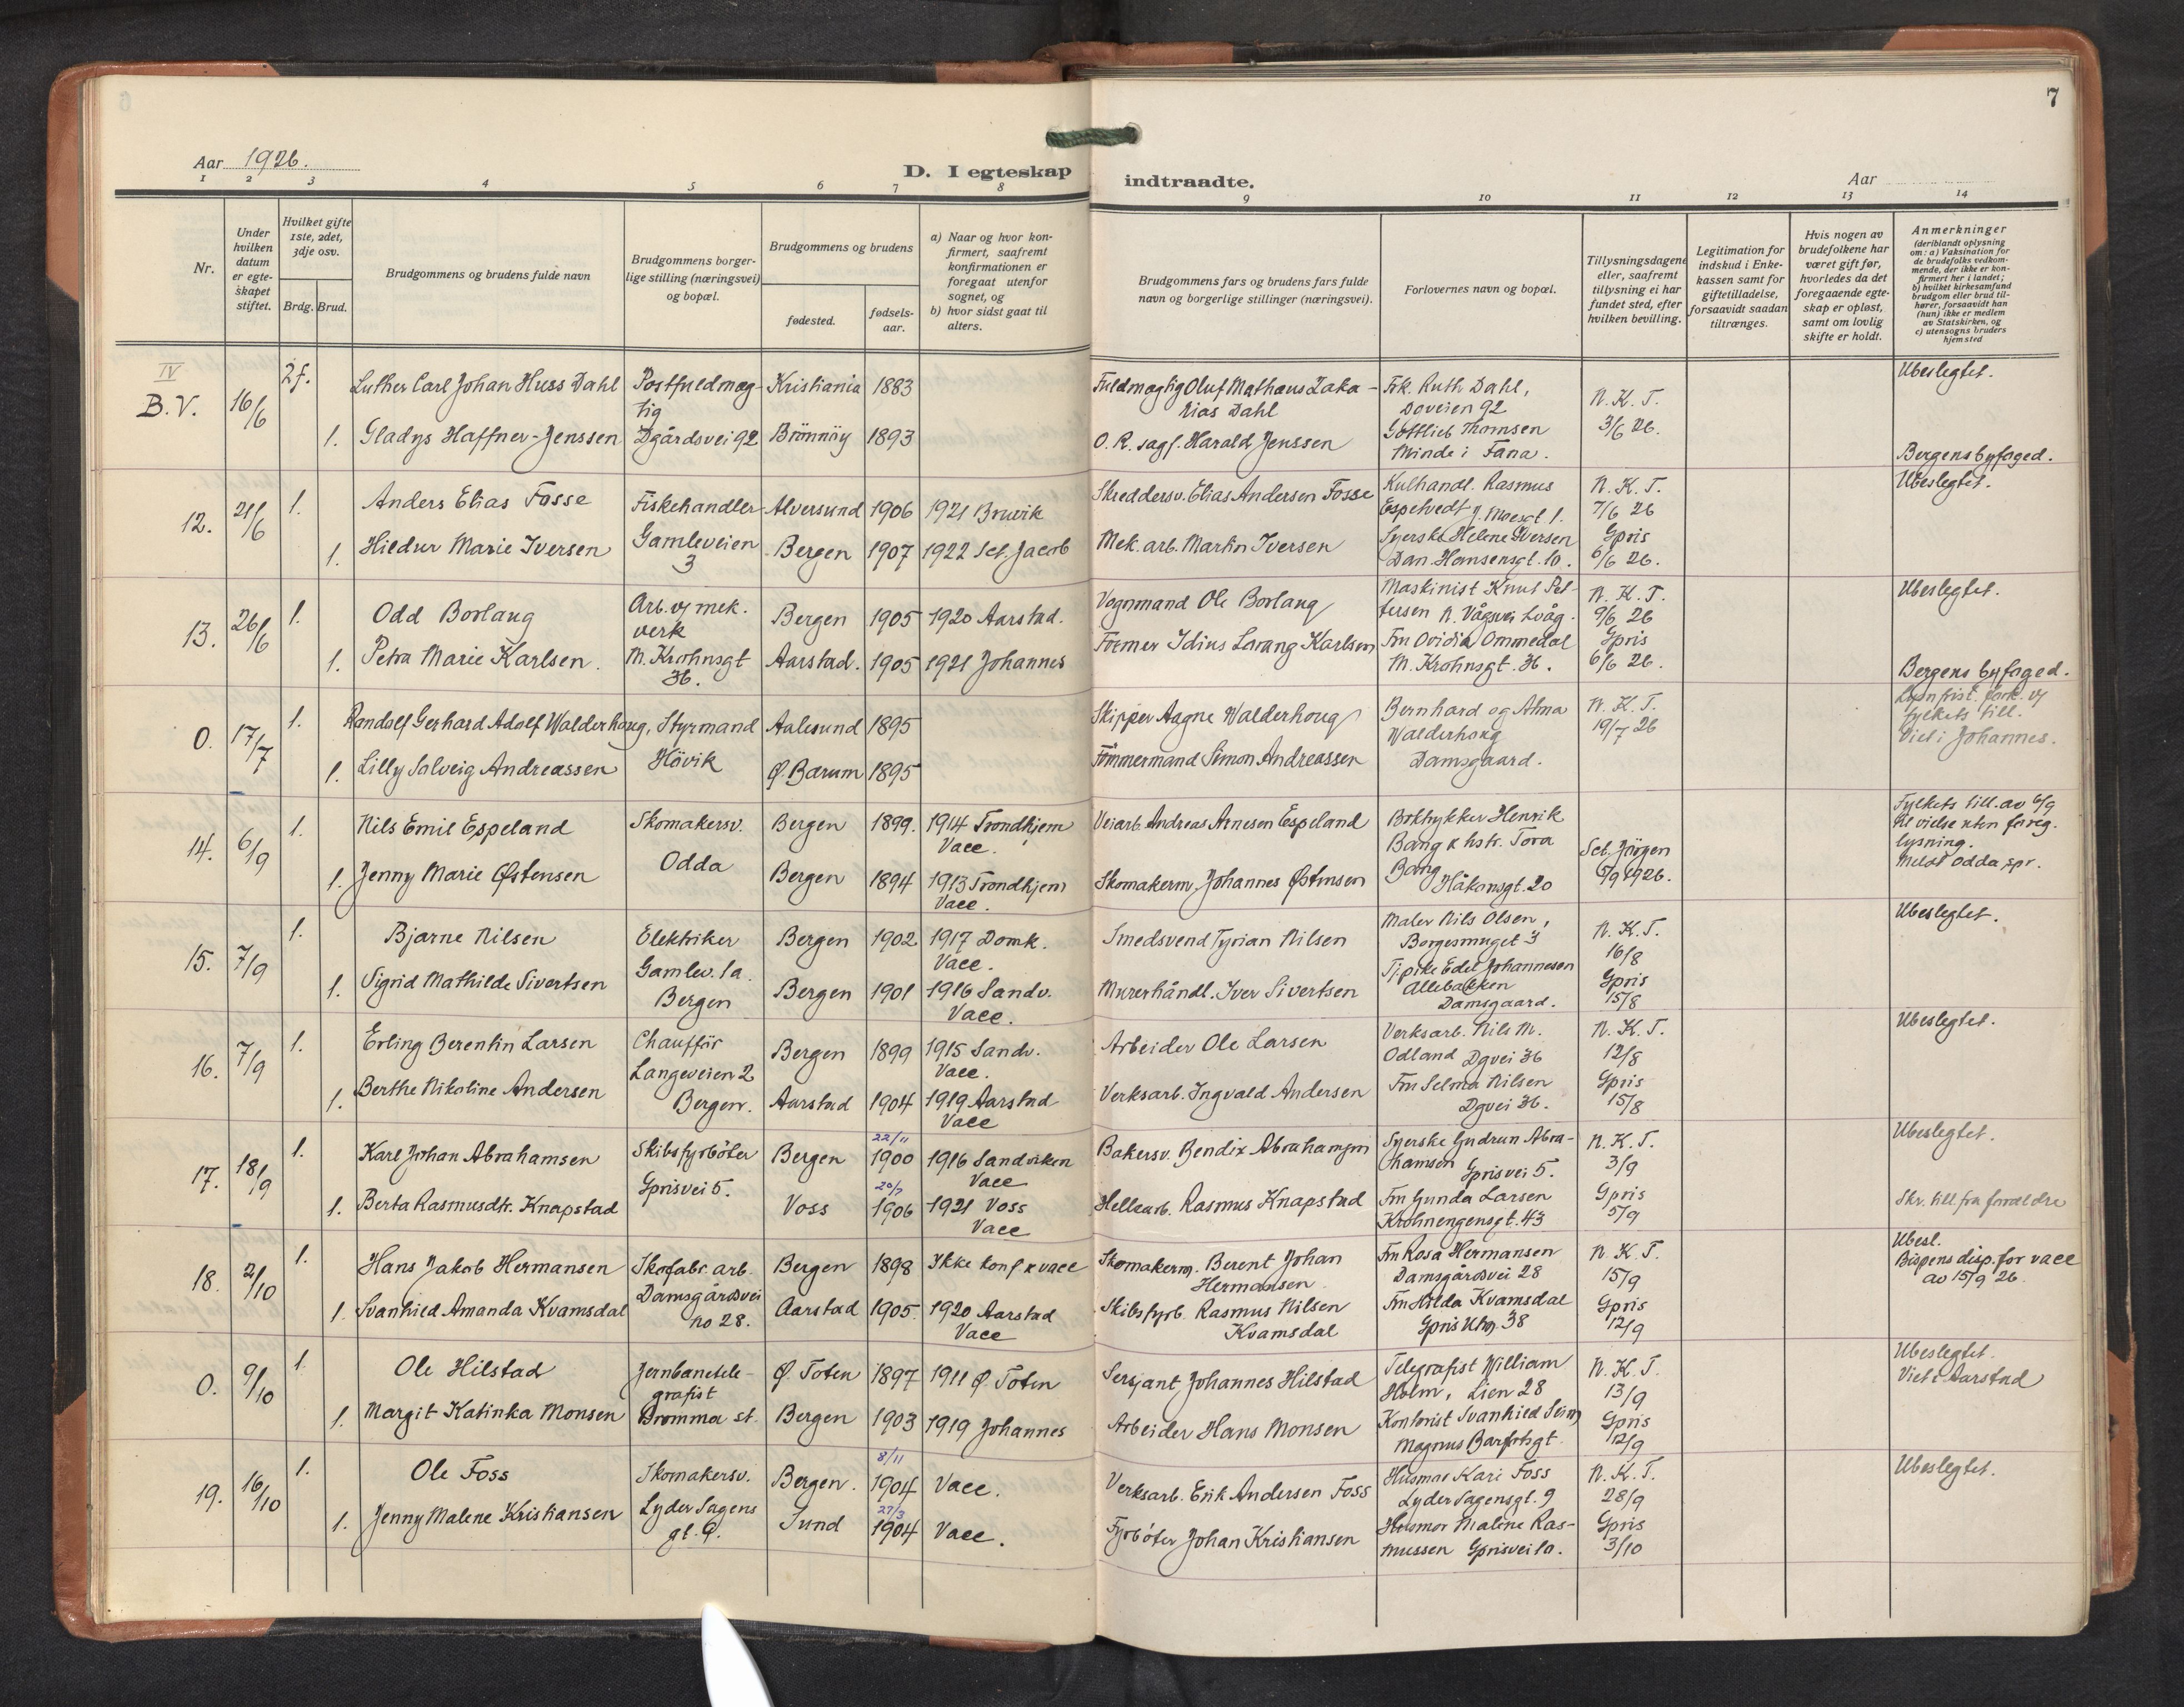 7
Aar 1926.
D. I egteskap indtraadte.
Aar
1 2 3 4 5 6 7 8 9 10 11 12 13 14
Nr.
Under hvilken datum er egteskapet stiftet.
Hvilket gifte 1ste, 2det, 3dje osv.
Brdg. Brud.
Brudgommens og brudens fulde navn
Brudgommens borgerlige stilling (næringsvei) og bopæl.
Brudgommens og brudens
fødested.
fødselsaar.
a) Naar og hvor konfirmert, saafremt konfirmationen er foregaat utenfor sognet, og
b) hvor sidst gaat til alters.
Brudgommens fars og brudens fars fulde navn og borgerlige stillinger (næringsvei).
Forlovernes navn og bopæl.
Tillysningsdagene eller, saafremt tillysning ei har fundet sted, efter hvilken bevilling.
Legitimation for indskud i Enkekassen samt for giftetilladelse, forsaavidt saadan tiltrænges.
Hvis nogen av brudefolkene har været gift før, hvorledes da det foregaaende egteskap er opløst, samt om lovlig skifte er holdt.
Anmerkninger
(deriblandt oplysning om: a) Vaksination for de brudefolks vedkommende, der ikke er konfirmert her i landet; b) hvilket kirkesamfund brudgom eller brud tilhører, forsaavidt han (hun) ikke er medlem av Statskirken, og c) utensogns bruders hjemsted
IV
B.V. 16/6 2f. Luther Carl Johan Huss Dahl Postfuldmægtig Kristiania 1883 Fuldmægtig Oluf Mathæus Zakarias Dahl Frk. Ruth Dahl, Doveien 92 N. K. T. 3/6 26. Ubeslegtet.
1. Gladys Haffner-Jenssen Dgårdsvei 92 Brönnöy 1893 O. R. sagf. Harald Jenssen Gottlieb Thomsen Minde i Fana. Bergens byfoged.
12. 21/6 1. Anders Elias Fosse Fiskehandler Alversund 1906 1921 Bruvik Skreddersv. Elias Andersen Fosse Kulhandl. Rasmus Espetvedt J. Moesgt 1. N. K. T. 7/6 26 Ubeslegtet.
1. Hildur Marie Iversen Gamleveien 3 Bergen 1907 1922 Sct. Jacob Mek. arb. Martin Iversen Syerske Helene Iversen Dan. Hansensgt. 10. Gpris 6/6 26.
13. 26/6 1. Odd Borlaug Arb. v/ mek. verk Bergen 1905 1920 Aarstad. Vognmand Ole Borlaug Maskinist Knut Pettersen N. Vågsvei Lvåg. N. K. T. 9/6 26 Ubeslegtet.
1. Petra Marie Karlsen. M. Krohnsgt 36. Aarstad. 1905 1921 Johannes Former Idius Lorang Karlsen Fru Ovidia Ommedal M. Krohnsgt. 36. Gpris 6/6 26. Bergens byfoged.
0. 17/7 1. Randolf Gerhard Adolf Walderhaug, Styrmand Aalesund 1895 Skipper Aagne Walderhoug Bernhard og Alma Walderhaug N. K. T. 19/7 26 fylkets till. Viet i Johannes.
1. Lilly Solveig Andreassen Hövik Ø. Bærum 1895 Tömmermand Simon Andreassen Damsgaard.
14. 6/9 1. Nils Emil Espeland Skomakersv. Bergen 1899. 1914 Trondhjem Vacc. Veiarb. Andreas Arnesen Espeland Boktrykker Henrik Bang & hstr. Tora Bang Håkonsgt. 20 Sct. Jörgen 5/9 1926. Fylkets till. av 6/9 til vielse uten foreg. lysning. Meldt Odda spr.
1. Jenny Marie Østensen Odda Bergen 1894 1913 Trondhjem Vacc. Skomakerm. Johannes Østensen
15. 7/9 1. Bjarne Nilsen Elektriker Bergen 1902 1917 Domk. Vacc. Smedsvend Tyrian Nilsen Maler Nils Olsen, Borgesmuget 3 N. K. T. 16/8 Ubeslegtet.
1. Sigrid Mathilde Sivertsen Gamlev. 1a. Bergen Bergen 1901 1916 Sandv. Vacc. Murerhåndl. Iver Sivertsen Tj.pike Edel Johannesen Allebakken Damsgaard. Gpris 15/8
16. 7/9 1. Erling Berentin Larsen Chauffør Bergen 1899 1915 Sandv. Vacc. Arbeider Ole Larsen Verksarb. Nils M. Odland Dgvei 36 N. K. T. 12/8 Ubeslegtet.
1. Berthe Nikoline Andersen Langeveien 2 Bergen. Aarstad 1904 1919 Aarstad Vacc Verksarb. Ingvald Andersen Fru Selma Nilsen Dgvei 36. Gpris 15/8
17. 18/9 1. Karl Johan Abrahamsen Skibsfyrböter Bergen 22/11 1900 1916 Sandviken Vacc Bakersv. Bendix Abrahamsen Syerske Gudrun Abrahamsen Gprisvei 5. N. K. T. 3/9 Ubeslegtet.
1. Berta Rasmusdtr. Knapstad Gprisvei 5. Voss 20/7 1906 1921 Voss Vacc Hellearb. Rasmus Knapstad Fru Gunda Larsen Krohnengensgt. 43 Gpris 5/9 Skr. till. fra foreldre
18. 2/10 1. Hans Jakob Hermansen Skofabr. arb. Bergen 1898 Ikke konf x vacc Skomakerm. Berent Johan Hermansen Fru Rosa Hermansen Damsgårdsvei 28 N. K. T. 15/9 Ubesl. Bispens disp. for vacc av 15/9 26.
1. Svanhild Amanda Kvamsdal Damsgårdsvei no 28. Aarstad 1905. 1920 Aarstad Vacc Skibsfyrb. Rasmus Nilsen Kvamsdal Fru Hilda Kvamsdal Gpris 38 Gpris 12/9
0. 9/10 1. Ole Hilstad Jernbanetelegrafist Ø. Toten 1897 1911 Ø. Toten Sersjant Johannes Hilstad Telegrafist William Holm, Lien 28 N. K. T. 13/9 Ubeslegtet. Viet i Aarstad
1. Margit Katinka Monsen Bromma st. Bergen 1903 1919 Johannes Arbeider Hans Monsen Kontorist Svanhild Seim Magnus Barfotsgt. Gpris 12/9
19. 16/10 1. Ole Foss Skomakersv. Bergen. 8/11 1904 Vacc. Verksarb. Erik Andersen Foss Husmor Kari Foss Lyder Sagensgt. 9 N. K. T. 28/9 Ubeslegtet.
1. Jenny Malene Kristiansen Lyder Sagens gt. 9. Sund 27/3 1904 Vacc. Fyrböter Johan Kristiansen Husmor Malene Rasmussen Gprisvei 1a. Gpris 3/10